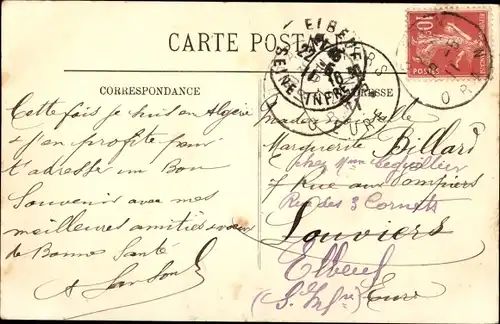 CARTE POSTALE
CORRESPONDANCE
ADRESSE
Cette fois je suis en Algérie
j'en profite pour
t'adresser un Bon
Souvenir avec mes
meilleures amitiés
de Bonne Santé
Mademoiselle
Marguerite Billard
chez Mme
7 Rue aux Pompiers
Rue des 3 Cornets
Louviers
Elbeuf
(S. Infre)
Eure
ELBEUF
SEINE INFRE
EURE
10
POSTES
ORAN